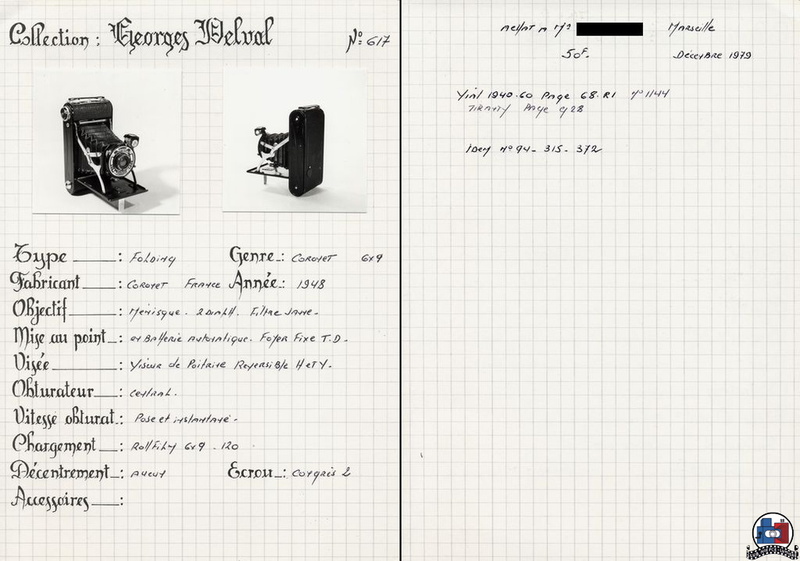 Collection : Georges Delval
No: 617
Type : Folding Genre : Coronet 6x9
Fabricant : Coronet France Année : 1948
Objectif : Ménisque. Filtre Jaune.
Mise au point : et Batterie Automatique. Foyer Fixe T.D.
Visée : Viseur de Poitrine Reversible H et V.
Obturateur : central.
Vitesse obturat : Pose et instantané.
Chargement : Rollfilm 6x9 . 120
Décentrement : Aucun Ecrou : Congrès 2
Accessoires :
Achat a Mr Marseille
50F. Décembre 1979
Vial 1940.60 Page 68.R1 no 1144
Page 928
Idem no 94 - 315 - 372